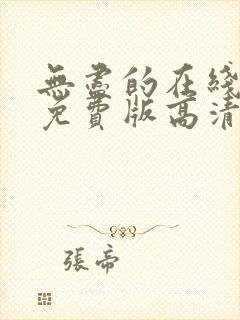 無盡的在綫
免費版高清
張帝